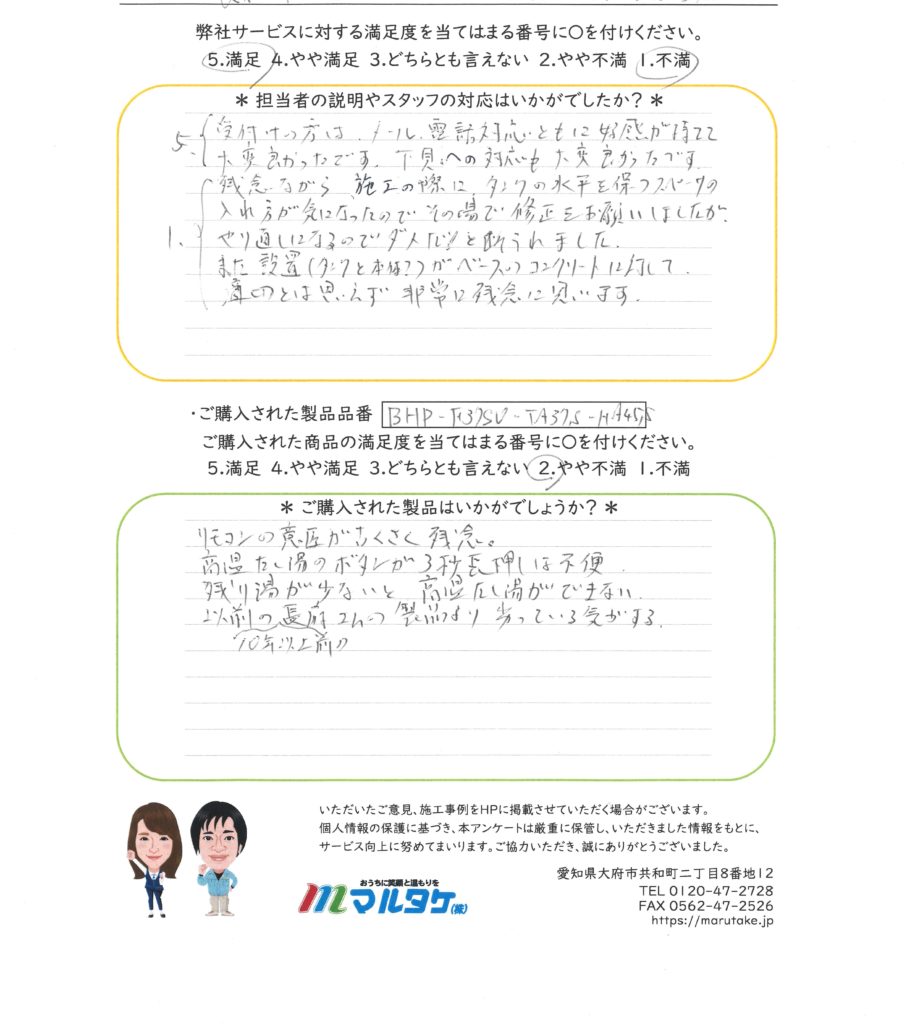 弊社サービスに対する満足度を当てはまる番号に〇を付けください。
5.満足 4.やや満足 3.どちらとも言えない 2.やや不満 1.不満
＊ 担当者の説明やスタッフの対応はいかがでしたか？ ＊
5. 受付けの方は、メール、電話対応ともに好感が持てて
大変良かったです。下見への対応も大変良かったです。
残念ながら 施工の際に、タンクの水平を保つスペーサの
入れ方が気になったのでその場で修正をお願いしましたが、
1. やり直しになるのでダメだ!と断られました。
また設置(タンクと本体?)がベースのコンクリートに対して、
適切とは思えず非常に残念に思います。
・ご購入された製品品番 BHP-F37SU-TA37S-HA45S
ご購入された商品の満足度を当てはまる番号に〇を付けください。
5.満足 4.やや満足 3.どちらとも言えない 2.やや不満 1.不満
＊ ご購入された製品はいかがでしょうか？ ＊
リモコンの意匠が古くさく残念。
高温たし湯のボタンが3秒長押しは不便。
残り湯が少ないと高温たし湯ができない。
以前の長府さんの製品より劣っている気がする。
10年以上前の
いただいたご意見、施工事例をHPに掲載させていただく場合がございます。
個人情報の保護に基づき、本アンケートは厳重に保管し、いただきました情報をもとに、
サービス向上に努めてまいります。ご協力いただき、誠にありがとうございました。
おうちに笑顔と温もりを
マルタケ(株)
愛知県大府市共和町二丁目8番地12
TEL 0120-47-2728
FAX 0562-47-2526
https://marutake.jp